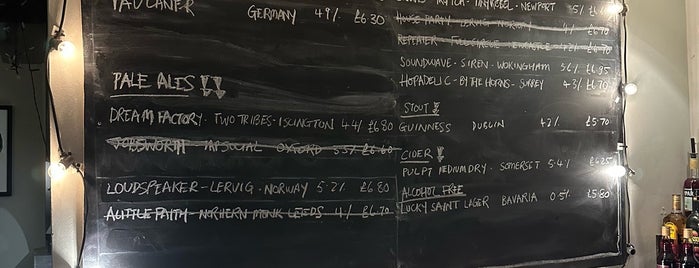 FAULCNER GERMANY 4.9% £6.30
PALE ALES
DREAM FACTORY - TWO TRIBES - ISLINGTON 4.4% £6.80
JOBSWORTH TAP SOCIAL OXFORD 5.5% £6.60
LOUDSPEAKER - LERVIG - NORWAY 5.2% £6.80
A LITTLE FAITH - NORHERN MONK LEEDS 4% £6.70
TINY REBEL - NEWPORT 5%
HOUSE PARTY LERVIG NORWAY 4% £6.70
REPEATER
SOUNDWAVE - SIREN - WOKINGHAM 5.6% £6.95
HOPADELIC - BY THE HORNS - SURREY 4.3% £6.70
STOUT
GUINNESS DUBLIN 4.2% £5.70
CIDER
PULPT MEDIUM DRY - SOMERSET 5.4% £6.25
ALCOHOL FREE
LUCKY SAINT LAGER BAVARIA 0.5% £5.80